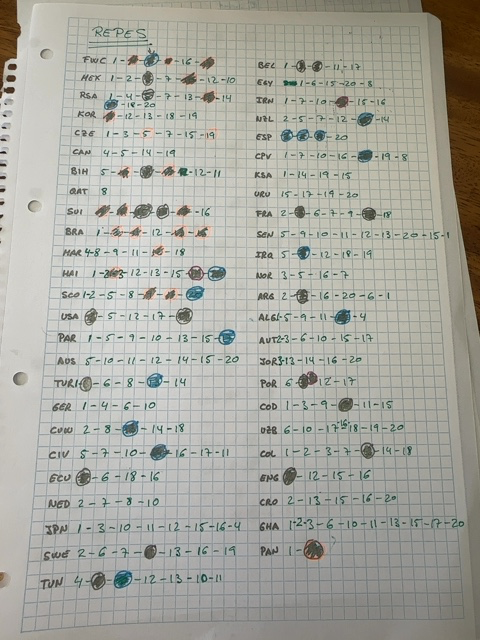 REPES
FWC 1 - 16
MEX 1 - 2 - 7 - 12 - 10
RSA 1 - 4 - 7 - 13 - 14
18 - 20
KOR 12 - 13 - 18 - 19
CZE 1 - 3 - 5 - 7 - 15 - 19
CAN 4 - 5 - 14 - 19
BIH 5 - 12 - 11
QAT 8
SUI 16
BRA 1 - 12
MAR 4 - 8 - 9 - 11 - 18
HAI 1 - 12 - 13 - 15
SCO 1 - 2 - 5 - 8
USA 5 - 12 - 17
PAR 1 - 5 - 9 - 10 - 13 - 15
AUS 5 - 10 - 11 - 12 - 14 - 15 - 20
TUR 1 - 6 - 8 - 14
GER 1 - 4 - 6 - 10
CUW 2 - 8 - 14 - 18
CIV 5 - 7 - 10 - 16 - 17 - 11
ECU 6 - 18 - 16
NED 2 - 7 - 8 - 10
JPN 1 - 3 - 10 - 11 - 12 - 15 - 16 - 4
SWE 2 - 6 - 7 - 13 - 16 - 19
TUN 4 - 12 - 13 - 10 - 11
BEL 1 - 11 - 17
EGY 1 - 6 - 15 - 20 - 8
IRN 1 - 7 - 10 - 15 - 16
NZL 2 - 5 - 7 - 12 - 14
ESP 20
CPV 1 - 7 - 10 - 16 - 19 - 8
KSA 1 - 14 - 19 - 15
URU 15 - 17 - 19 - 20
FRA 2 - 6 - 7 - 9 - 18
SEN 5 - 9 - 10 - 11 - 12 - 13 - 20 - 15 - 1
IRQ 5 - 12 - 18 - 19
NOR 3 - 5 - 16 - 7
ARG 2 - 16 - 20 - 6 - 1
ALG 1 - 5 - 9 - 11 - 4
AUT 2 - 3 - 6 - 10 - 15 - 17
JOR 3 - 13 - 14 - 16 - 20
POR 6 - 12 - 17
COD 1 - 3 - 9 - 11 - 15
UZB 6 - 10 - 17 - 16 - 18 - 19 - 20
COL 1 - 2 - 3 - 7 - 14 - 18
ENG 12 - 15 - 16
CRO 2 - 13 - 15 - 16 - 20
GHA 1 - 2 - 3 - 6 - 10 - 11 - 13 - 15 - 17 - 20
PAN 1 -